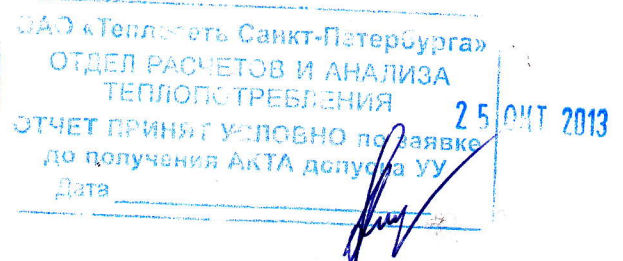 ОАО «Теплосеть Санкт-Петербурга»
ОТДЕЛ РАСЧЕТОВ И АНАЛИЗА
ТЕПЛОПОТРЕБЛЕНИЯ
25 ОКТ 2013
ОТЧЕТ ПРИНЯТ УСЛОВНО по заявке
до получения АКТА допуска УУ
Дата